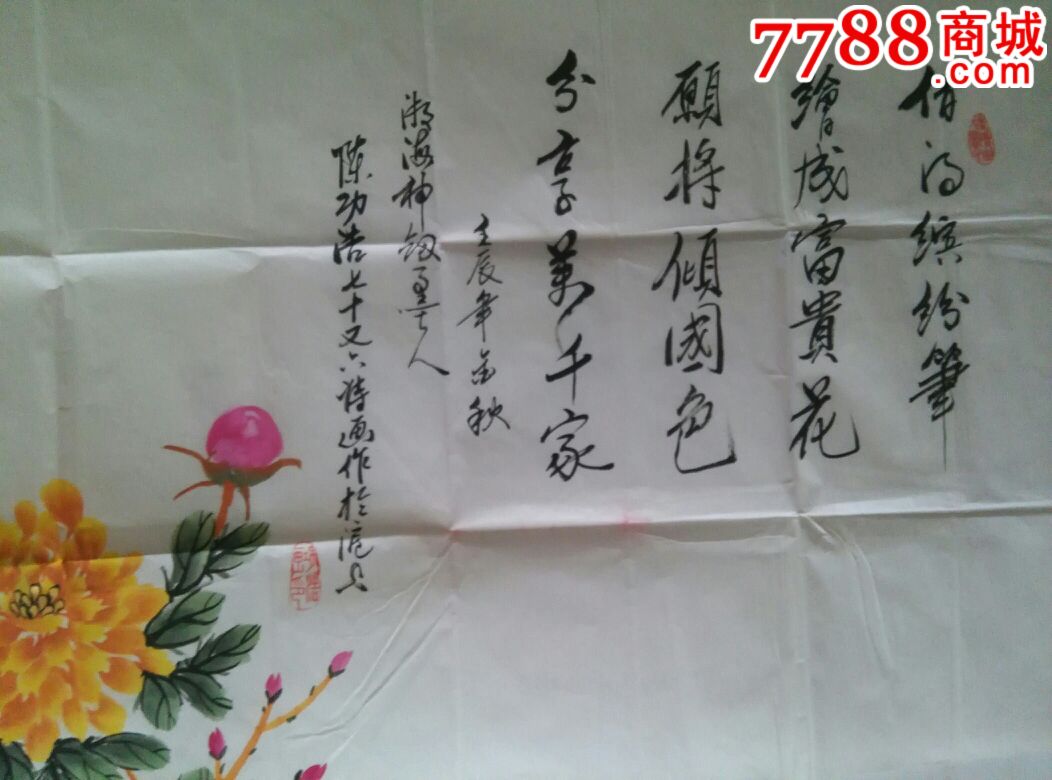 7788商城
.com
借得缤纷筆
繪成富貴花
願將傾國色
分享萬千家
壬辰年金秋
瀚海神劔墨人
陈功浩七十又六诗画作於滬上